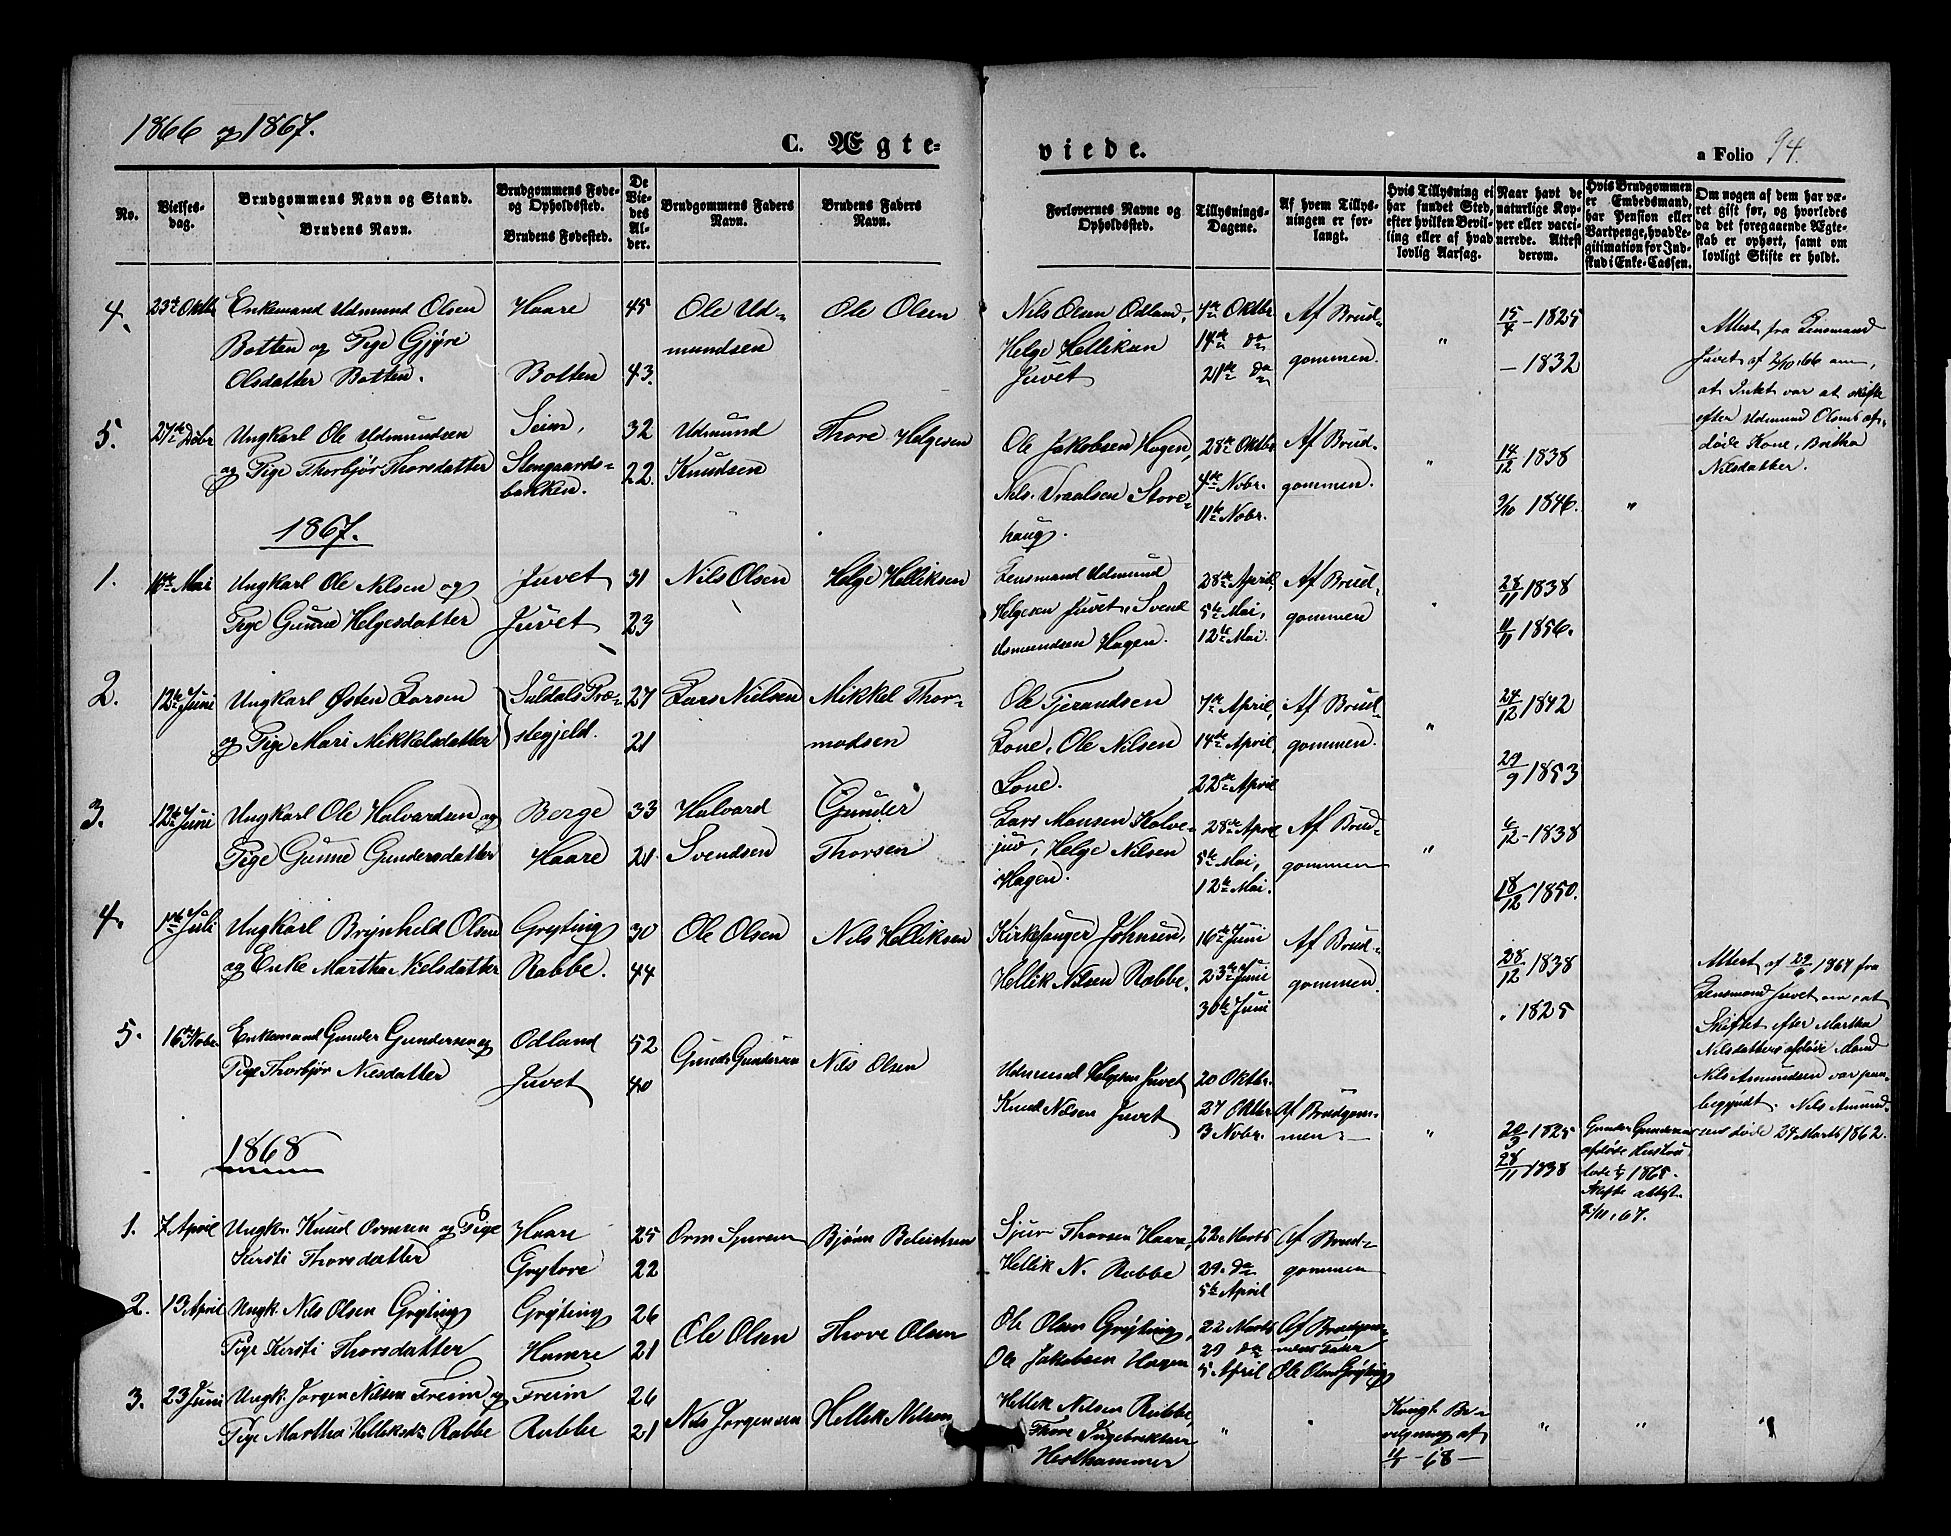 1866 og 1867.
C. Ægte-
viede.
a Folio 94.
No.
Vielses-
dag.
Brudgommens Navn og Stand.
Brudens Navn.
Brudgommens Føde-
og Opholdssted.
Brudens Fødested.
De
Vie-
des
Al-
der.
Brudgommens Faders
Navn.
Brudens Faders
Navn.
Forlovernes Navne og
Opholdssted.
Tillysnings-
Dagene.
Af hvem Tillys-
ningen er for-
langt.
Hvis Tillysning ei
har fundet Sted,
efter hvilken Bevil-
ling eller af hvad
lovlig Aarsag.
Naar havt de
naturlige Kop-
per eller vacci-
nerede. Attest
derom.
Hvis Brudgommen
er Embedsmand,
har Pension eller
Vartpenge, hvad Le-
gitimation for Ind-
skud i Enke-Cassen.
Om nogen af dem har væ-
ret gift før, og hvorledes
da det foregaaende Ægte-
skab er ophørt, samt om
lovligt Skifte er holdt.
4. 23de Oktbr Enkemand Udmund Olsen Haare 45 Ole Ud- Ole Olsen
Botten og Pige Gjøri mundsen
Olsdatter Botten. Botten 43.
Nils Olsen Odland, 4de Oktbr Af Brud- 15/4 - 1825
Helge Helliksen 14de do gommen. " - 1832
Juvet 21de do
Attest fra Lensmand
Juvet af 2/10 66 om,
at Intet var at skifte
efter Udmund Olsens af-
døde Kone, Britha
Nilsdatter.
5. 27de Dcbr Ungkarl Ole Udmundsen Seim, 32 Udmund Thore Helgesen
og Pige Thorbjør Thorsdatter Steengaards- 22 Knudsen
bakken.
Ole Jakobsen Hagen, 28de Oktbr Af Brud- 14/12 1838
Nils Vraalsen Store- 4de Nobr. gommen. " 9/10 1846. "
haug. 11te Nobr.
1867.
1. Mai Ungkarl Ole Nilsen og Juvet 31 Nils Olsen Helge Helliksen
Pige Gunne Helgesdatter Juvet 23
Lensmand Udmund 28de April, Af Brud- 28/11 1838
Helgesen Juvet, Svend 5te Mai, gommen " 11/11 1856.
Udmundsen Hagen. 12te Mai.
2. 12te Juni Ungkarl Østen Larsen Suldals Præ- 27 Lars Nielsen Mikkel Thor-
og Pige Mari Mikkelsdatter stegjeld. 21 modsen
Ole Tjerandsen 7de April, Af Brud- 24/12 1842
Lone, Ole Nilsen 14de April gommen. " 29/9 1853
Lone. 22de April
3. 12te Juni Ungkarl Ole Halvardsen og Berge 33 Halvard Gunder
Pige Gunne Gundersdatter Haare 21. Svendsen Thorsen
Lars Monsen Kalve- 28de April Af Brud- 6/12 - 1838
juv, Helge Nilsen 5te Mai, gommen "
Hagen. 12te Mai. 18/12 1850.
4. 1ste Juli Ungkarl Brynheld Olsen Gryting 30 Ole Olsen Nils Helliksen
og Enke Martha Nielsdatter Rabbe. 44
Kirkesanger Johnsen, 16de Juni Af Brud- 28/12 1838
Hellik Nilsen Rabbe. 23de Juni gommen. " 1825
30te Juni
Attest af 29/6 1867 fra
Lensmand Juvet om, at
Skiftet efter Martha
Nilsdatters afdøde Mand
Nils Amundsen var paa-
begyndt. Nils Amund-
sens døde 24 Marts 1862.
5. 16 Nobr. Enkemand Gunder Gundersen og Odland 52 Gunder Gundersen Nils Olsen
Pige Thorbjør Nilsdatter Juvet 40
Udmund Helgesen Juvet 20 Oktbr.
Knud Nilsen Juvet 27 Oktbr Af Brudgom-
3 Nobr. men " 20/3 1825
28/11 1838
Gunder Gundersens
afdøde Hustru
døde 1865.
Skifte attest
2/11, 67.
1868
1. 7 April Ungkr. Knud Ormsen og Pige Haare 25 Orm Sjursen Bjørn
Kirsti Thorsdatter Grytøre 22
Sjur Thorsen Haare, 22 Marts Af Brud-
Hellik N. Rabbe 29. do gommen
5te April
2. 13 April Ungk. Nils Olsen Gryting Gryting 26 Ole Olsen Thore Olsen
Pige Kirsti Thorsdatter Hamre 21
Ole Olsen Gryting, 22 Marts Af Brudgom-
Ole Jakobsen Hagen 29 do mens Fader
5 April Ole Olsen Gryting
3. 23 Juni Ungk. Jorgen Nilsen Freim og Freim 26 Nils Jorgensen Hellik Nilsen
Pige Martha Helliksdr Rabbe Rabbe 21
Hellik Nilsen Rabbe, " " Kongl. Be- " " "
Thore Ingebriktsen vilgning af
Hesthammer - 68 -